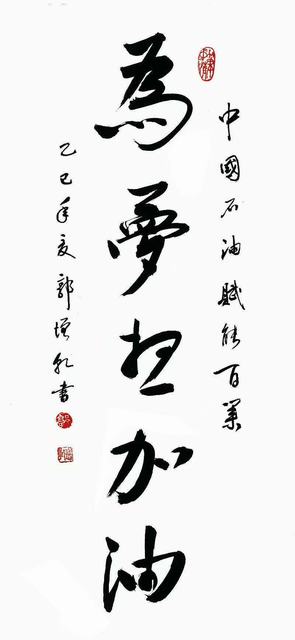 中國石油賦能百業
為夢想加油
乙巳年夏郭增書